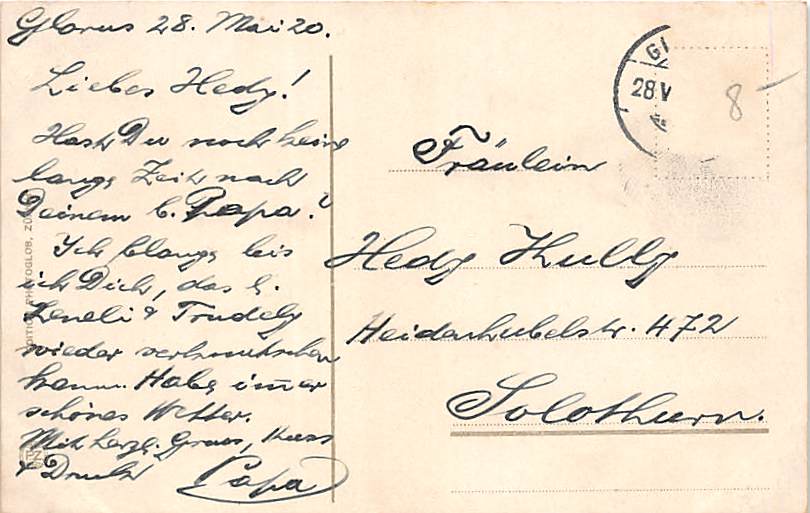 Glarus 28. Mai 20.
Liebes Hedy!
Hast Du noch keine
lange Zeit nach
Deinem l. Papa?
Ich blange bis
ich Dich, das l.
Leneli & Trudely
wieder verkrutschen
kann. Habe immer
schönes Wetter.
Mit herzl. Gruss, Kuss
& Druck Papa
Fräulein
Hedy Kully
Heidenhubelstr. 472
Solothurn.
GL
28 V
8
PHOTOGLOB,
PZ